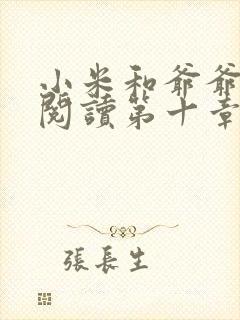 小米和爺爺
閱讀第十章
張長生